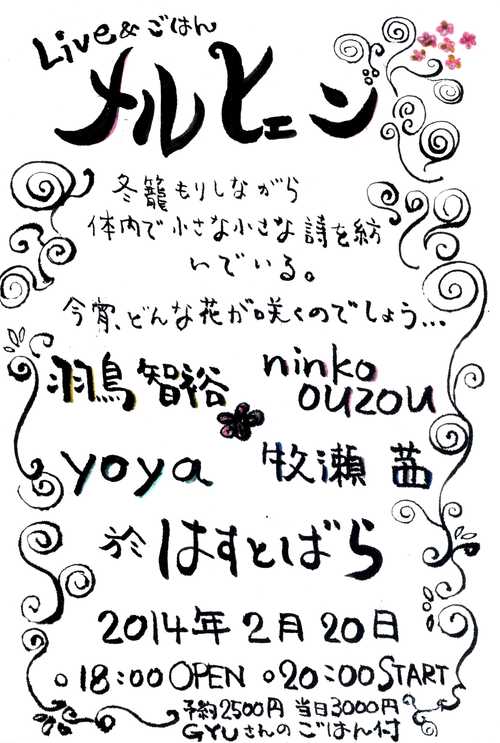 Live&ごはん
メルヒェン
冬籠もりしながら
体内で小さな小さな詩を紡
いでいる。
今宵、どんな花が咲くのでしょう...
羽鳥智裕
ninko ouzou
yoya
牧瀬茜
於 はすとばら
2014年2月20日
○18:00 OPEN ○20:00 START
予約2500円 当日3000円
GYUさんのごはん付